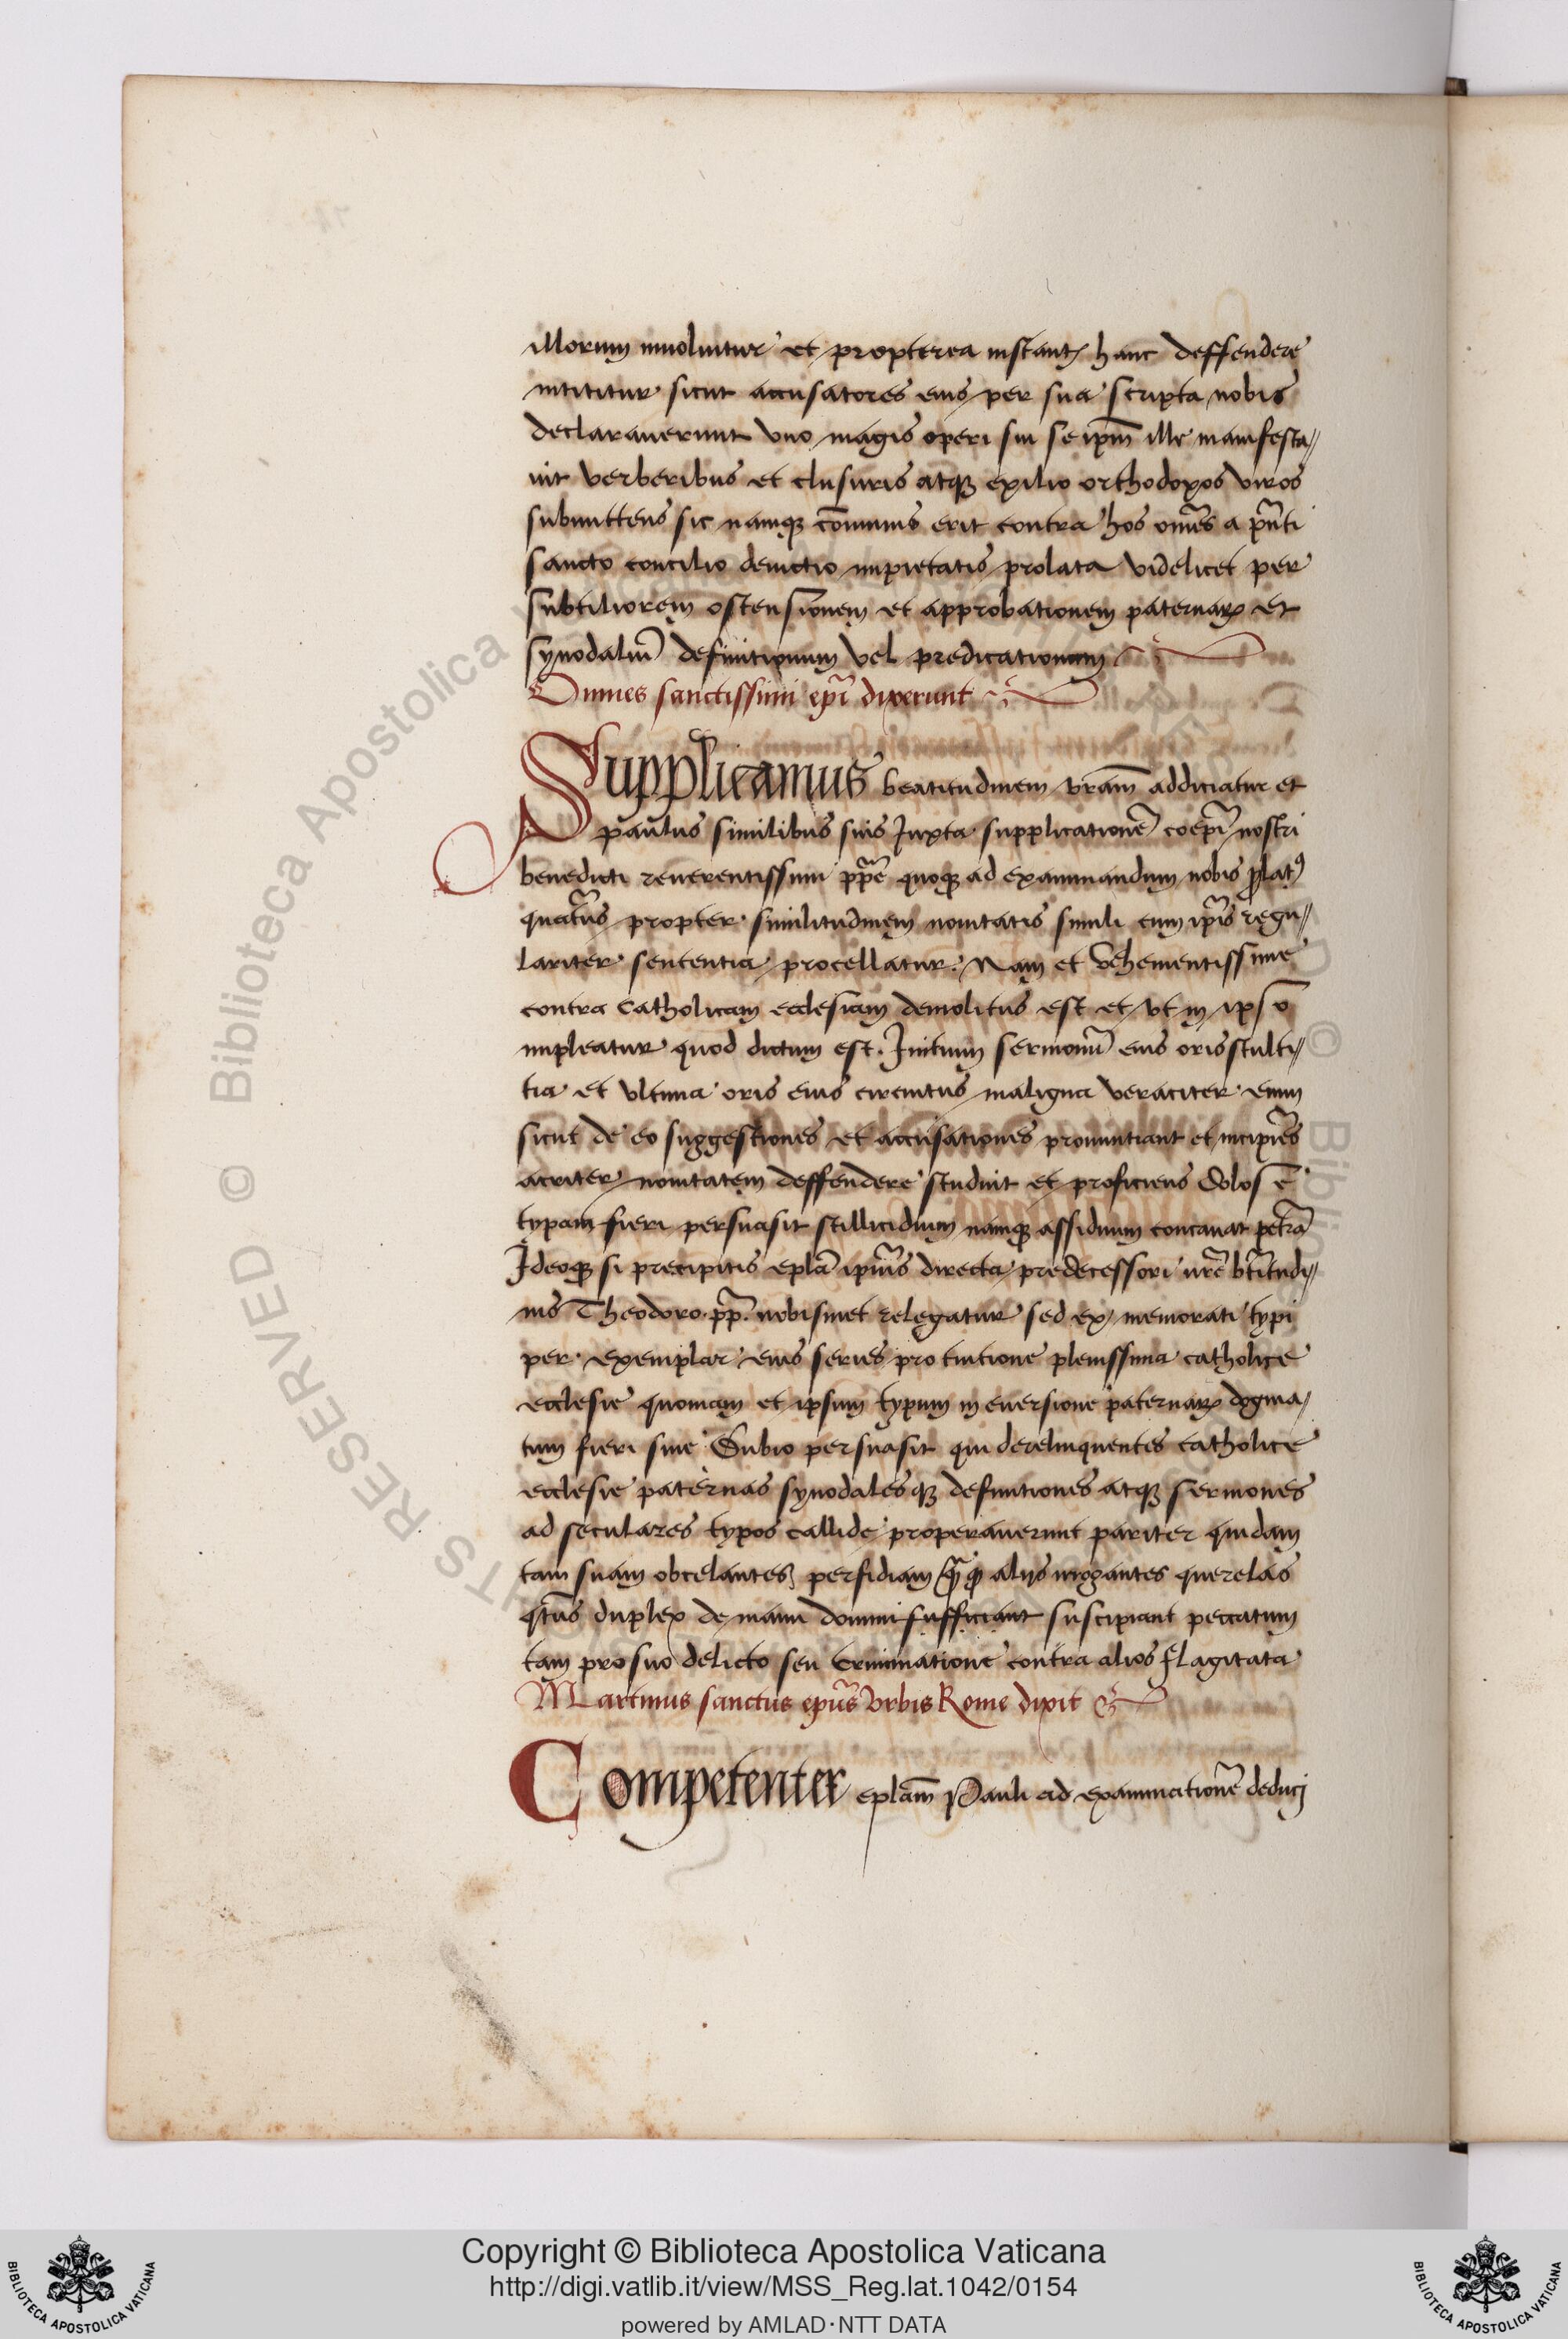 illorum inuoluitur et propterea instant hanc deffendere
intititur sicut accusatores eius per sua scripta nobis
declarauerunt vno magis operi sui se ip̄m ille manifesta//
uit verberibus et clusuris atqꝫ exilio orthodoxos viros
submittens sic namqꝫ cōmunis erit contra hos om̄es a pn̄ti
sancto concilio deuictio impietatis prolata videlicet per
subtiliorem ostensionem et approbationem paternaꝝ et
synodaliū definitionum vel predicationum
Omnes sanctissimi epī dixerunt
Supplicamus beatitudinem vram̄ addiciatur et
paulus similibus suis Iuxta supplicationē coepī nostri
benedicti reuerentissimi pp̄e quoqꝫ ad examinandum nobis ꝓlatꝰ
quat̄us propter similitudinem nouitatis simili cum ip̄is regu//
lariter sententia procellatur. Nam et vehementissime
contra catholicam ecclesiam demolitus est et vt in ipso
impleatur quod dictum est. Initium sermonū eius oris stulti//
tia et vltima oris eius circuitus maligna veraciter enim
sicut de eo suggestiones et accusationes pronuntiant et incipiēs
acriter nouitatem deffendere studuit et proficiens dolosē
typam fieri persuasit stillicidium namqꝫ assiduum concauat petrā
Ideoqꝫ si precipitis eplā ipiūs directa predecessori urē bt̄itudi//
nis Theodoro pp. nobismet relegatur sed ex memorati typi
per exemplar eius series pro tuitione plenissima catholice
ecclesie quoniam et ipsum typum in euersione paternaꝝ dogma/
tum fieri sine dubio persuasit qui derelinquentes catholice
ecclesie paternas synodalesqꝫ definitiones atqꝫ sermones
ad seculares typos callide properauerunt pariter quidam
tam suam obcelantes perfidiam alijs irrogantes querelas
qt̄us duplex de manu domini sufficiant suscipiant peccatum
tam pro suo delicto seu criminatione contra alios flagitata
Martinus sanctus epūs Vrbis Rome dixit
Competenter eplam̄ Pauli ad examinationē deduci
Copyright © Biblioteca Apostolica Vaticana
http://digi.vatlib.it/view/MSS_Reg.lat.1042/0154
powered by AMLAD·NTT DATA
BIBLIOTECA APOSTOLICA VATICANA
BIBLIOTECA APOSTOLICA VATICANA